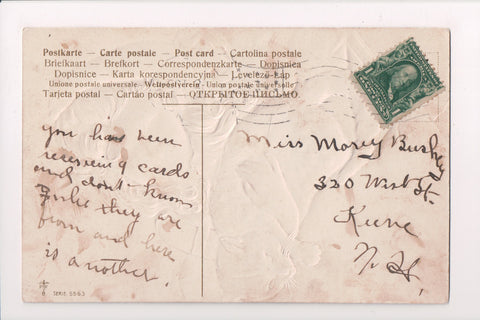 Postkarte — Carte postale — Post card — Cartolina postale
Briefkaart — Brefkort — Correspondenzkarte — Dopisnica
Dopisnice — Karta korespondencyjna — Levelező-Lap
Unione postale universale — Weltpostverein — Union postale universelle
Tarjeta postal — Cartão postal — ОТКРЫТОЕ ПИСЬМО
you has been
receiving cards
and don't know
who they are
from and here
is another.
Miss Mary
320 West St.
Keene
N. H.
SERIE 5563